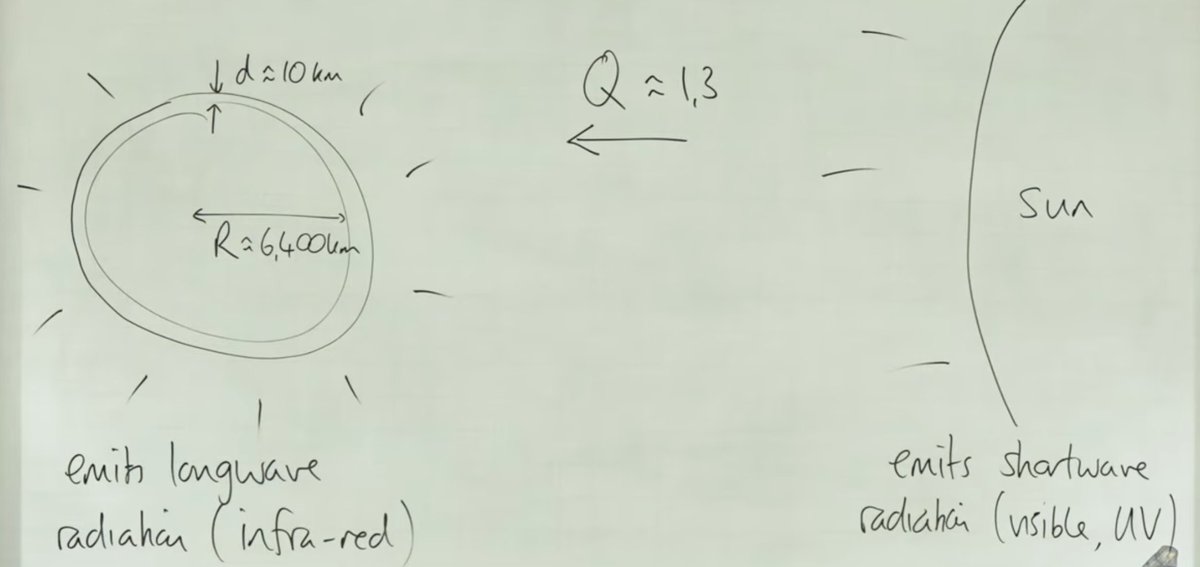 d ≈ 10 km
Q ≈ 1,3
R ≈ 6,400 km
Sun
emits longwave
radiation (infra-red)
emits shortwave
radiation (visible, UV)